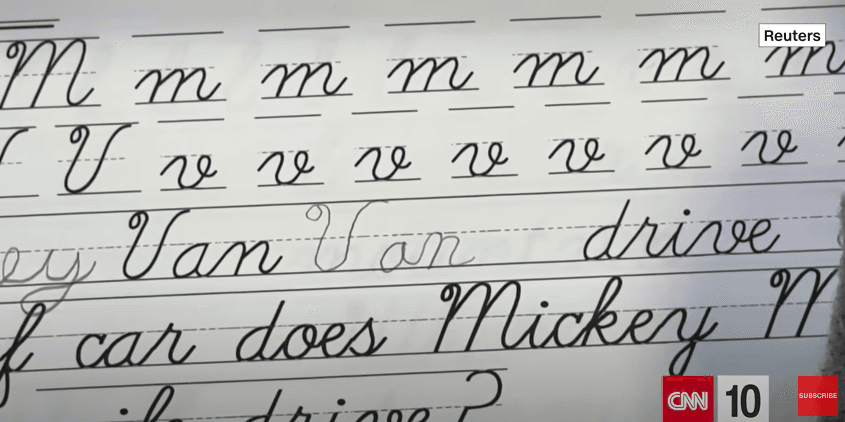 Reuters
M m m m m m m
V v v v v v v v
ey Van Van drive
f car does Mickey M
drive?
CNN 10 SUBSCRIBE